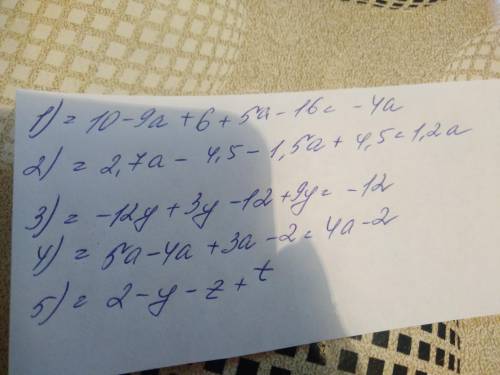 1) = 10 - 9a + 6 + 5a - 16 = -4a
2) = 2,7a - 4,5 - 1,5a + 4,5 = 1,2a
3) = -12y + 3y - 12 + 9y = -12
4) = 5a - 4a + 3a - 2 = 4a - 2
5) = 2 - y - z + t